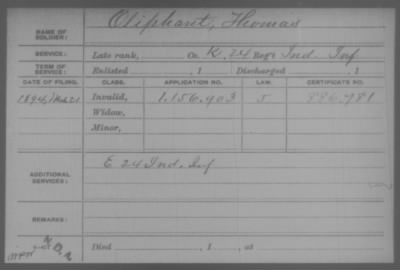 NAME OF SOLDIER: Oliphant, Thomas
SERVICE: Late rank, Co. K, 24 Reg't Ind. Inf
TERM OF SERVICE: Enlisted , 1 Discharged , 1
DATE OF FILING. CLASS. APPLICATION NO. LAW. CERTIFICATE NO.
1894, Invalid, 1.156.903 886.981
Widow,
Minor,
ADDITIONAL SERVICES: E 24 Ind. Inf
REMARKS:
Died , 1 , at